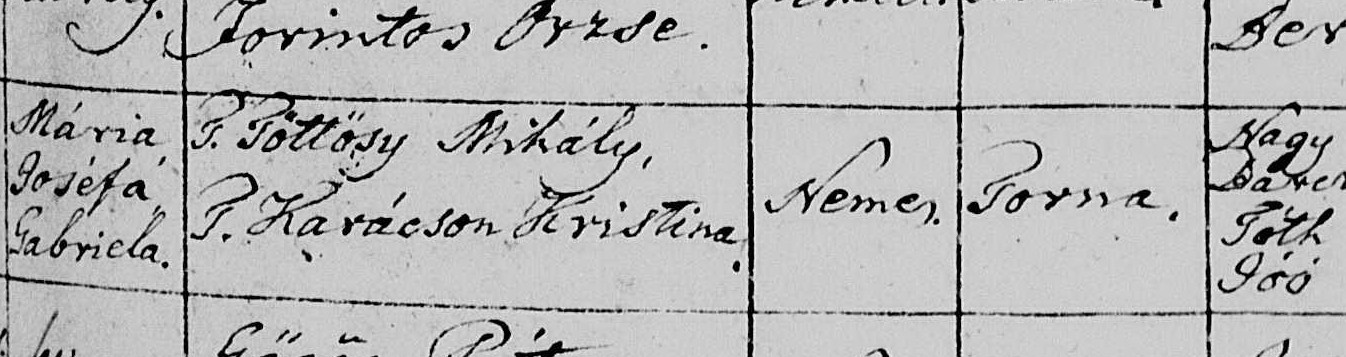 Jorintos Örzse.
Ber
Mária
Joséfa
Gabriela.
T. Töttösy Mihály,
T. Karácson Kristina.
Nemes.
Torna.
Nagy
Tóth
Joó